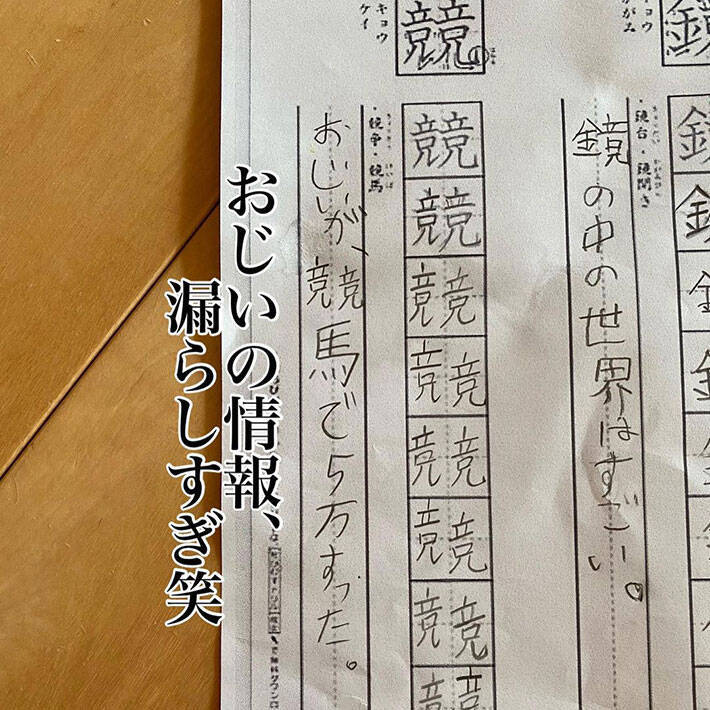 鏡
キョウ
がみ
鏡
鏡
・鏡台・鏡開き
鏡の中の世界はすごい。
競
キョウ
ケイ
競
競
競
競
競
競
競
競
・競争・競馬
きょうそう けいば
おじいが、競馬で5万すった。
おじいの情報、
漏らしすぎ笑